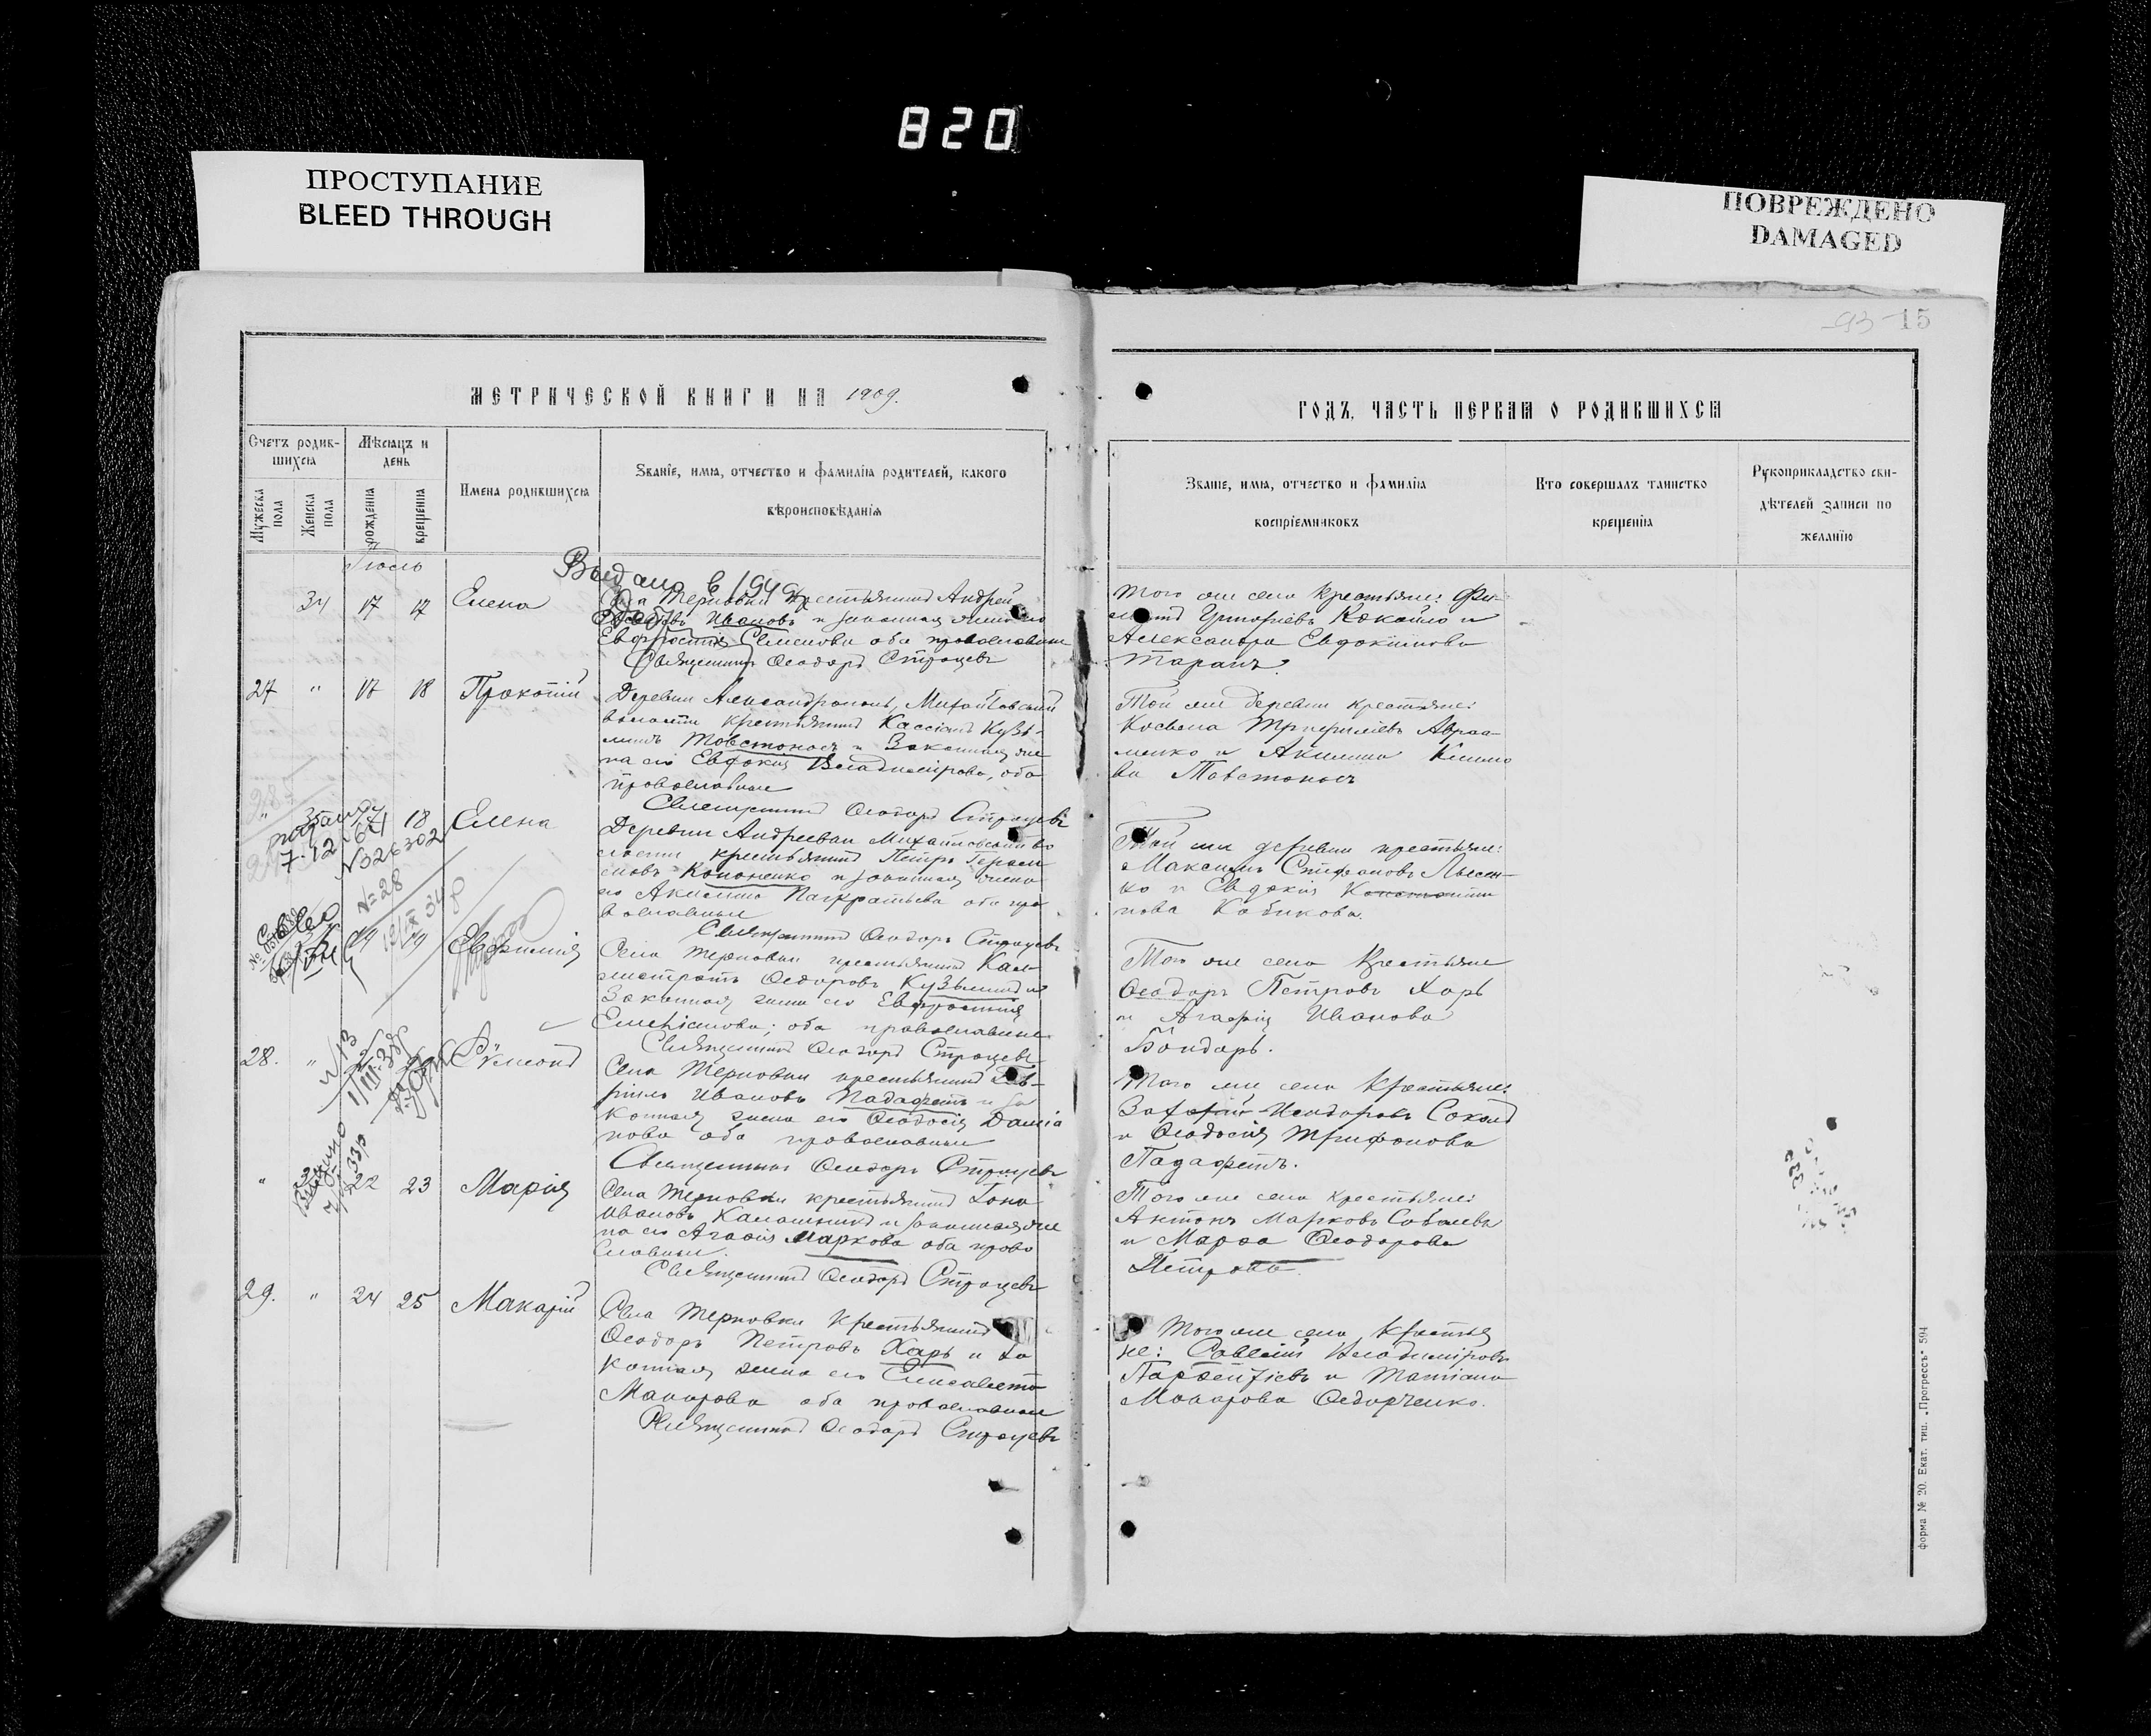 820
ПРОСТУПАНИЕ
BLEED THROUGH
ПОВРЕЖДЕНО
DAMAGED
93 15
МЕТРИЧЕСКОЙ КНИГИ НА 1909.
ГОДЪ, ЧАСТЬ ПЕРВАЯ О РОДИВШИХСЯ
Счетъ родив-
шихся
Мѣсяцъ и
день
Мужеска
пола
Женска
пола
рожденія
крещенія
Имена родившихся
Званіе, имя, отчество и фамилія родителей, какого
вѣроисповѣданія
Званіе, имя, отчество и фамилія
воспріемниковъ
Кто совершалъ таинство
крещенія
Рукоприкладство сви-
дѣтелей записи по
желанію
Іюль
Выдано в 1949
34 17 17 Елена
Терновки крестьянинъ Андрей
Ивановъ и законная жена его
Евфросинія Семенова оба православные
Священникъ Ѳеодоръ
Того же села крестьяне: Фи-
Григоріевъ Кокайло и
Александра Евдокимова
Таранъ.
27 " 17 18 Прокопій
Деревни Александрополь, Михайловской
волости крестьянинъ Кассіанъ Кузь-
минъ Товстоносъ и Законная же
на его Евдокія Владимірова, оба
православные
Священникъ Ѳеодоръ
Той же деревни крестьяне:
Косьма Трифиліевъ Авраа-
менко и Акилина Климо
ва Товстоносъ
" 35 17 18 Елена
7.12.61
N326302
Деревни Андреевки Михайловской во
лости крестьянинъ Петръ Гераси
мовъ Кононенко и законная жена
его Акилина Панкратьева оба пра
вославные
Священникъ Ѳеодоръ
Той же деревни крестьяне:
Максимъ Стефановъ Лысен-
ко и Евдокія Константи
нова Кобикова.
N=28
Евфимія
Села Терновки крестьянинъ Кали-
стратъ Ѳеодоровъ Кузьминъ и
Законная жена его Евфросинія
Емельianова; оба православные
Священникъ Ѳеодоръ
Того же села Крестьяне
Ѳеодоръ Петровъ Харь
и Агафія Иванова
Бондарь.
28. "
N13
Села Терновки крестьянинъ Гав-
ріилъ Ивановъ Падафетъ и За
конная жена его Ѳеодосія Даміа
нова оба православные
Священникъ Ѳеодоръ
Того же села Крестьяне:
Ѳеодоровъ Соколъ
и Ѳеодосія Трифонова
Падафетъ.
" 22 23 Марія
Выдано
Села Терновки крестьянинъ Іона
Ивановъ Калашникъ и законная же
на его Агафія Маркова оба право
славные.
Священникъ Ѳеодоръ
Того же села крестьяне:
Антонъ Марковъ
и Марѳа Ѳеодорова
Петрова.
29. " 24 25 Макарій
Села Терновки Крестьянинъ
Ѳеодоръ Петровъ Харь и За
конная жена его Елисавета
Макарова оба православные
Священникъ Ѳеодоръ
Того же села Крестья
не: Савелій Владиміровъ
и Татіана
Макарова Ѳедорченко.
форма № 20. Екат. тип. „Прогрессъ" 594